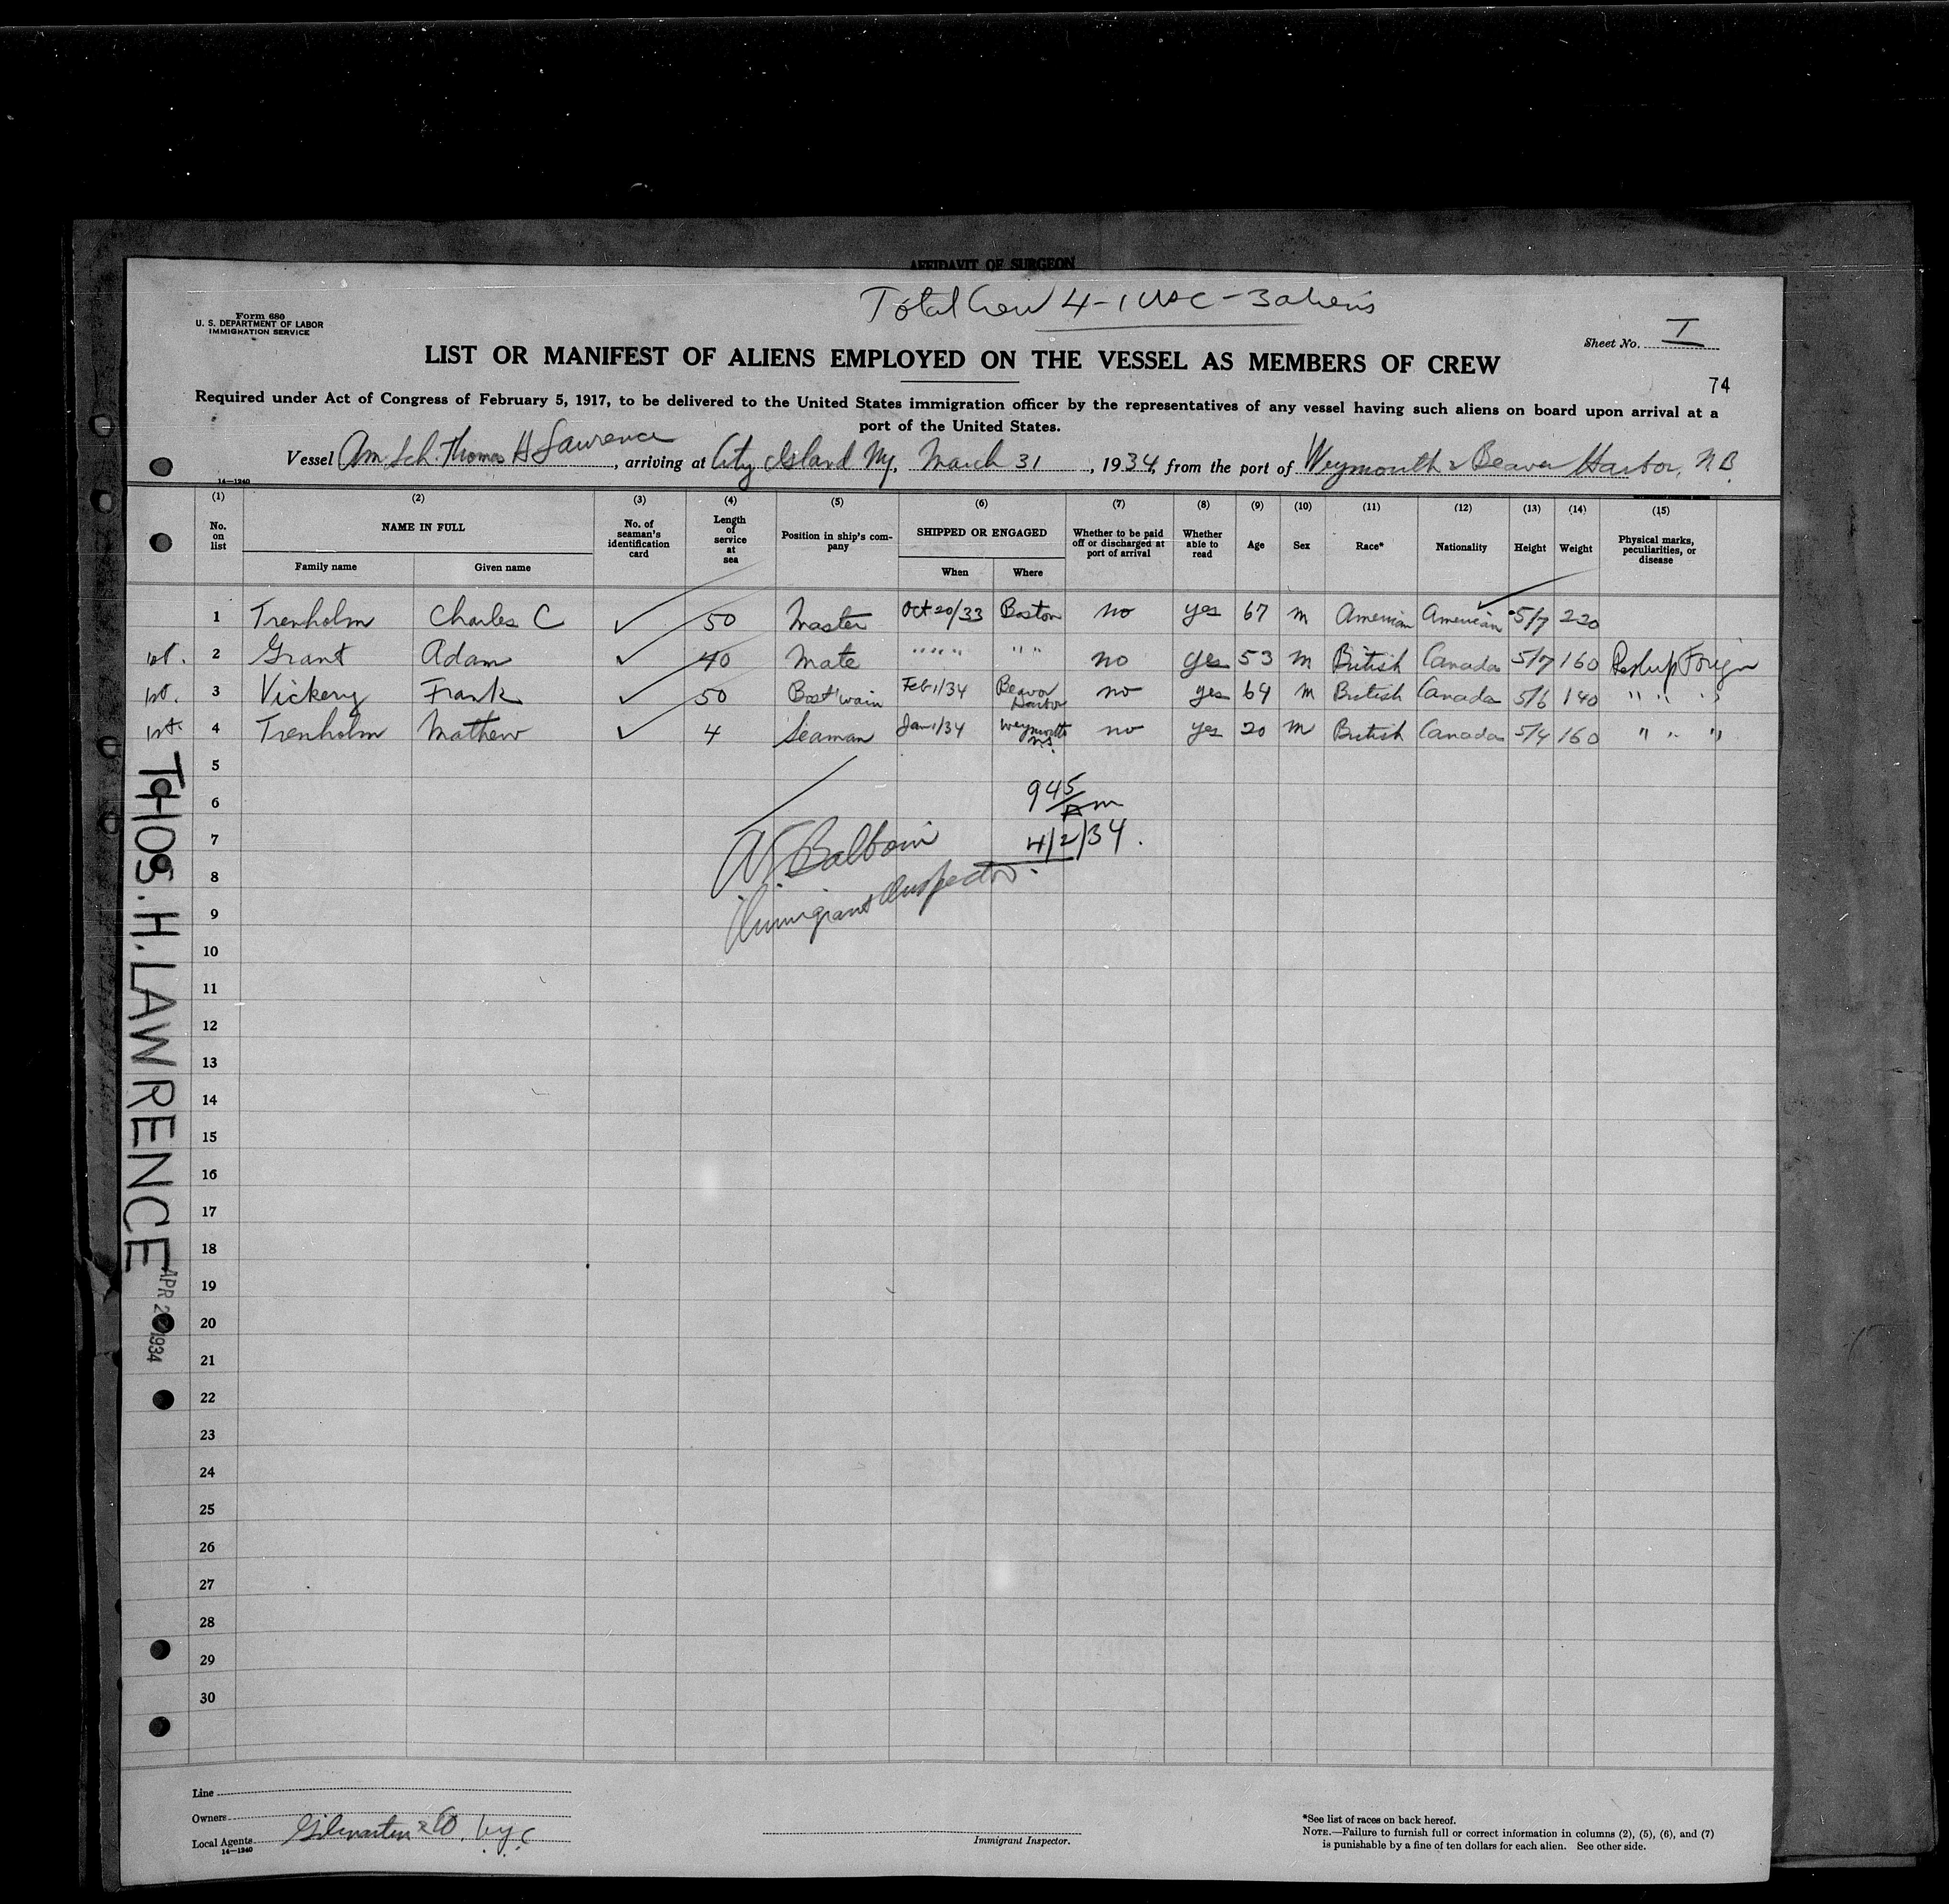 AFFIDAVIT OF SURGEON
Total Crew 4 - 1 USC - 3 aliens
Form 680
U. S. DEPARTMENT OF LABOR
IMMIGRATION SERVICE
Sheet No. I
LIST OR MANIFEST OF ALIENS EMPLOYED ON THE VESSEL AS MEMBERS OF CREW
74
Required under Act of Congress of February 5, 1917, to be delivered to the United States immigration officer by the representatives of any vessel having such aliens on board upon arrival at a
port of the United States.
Vessel Am. Sch. Thomas H Lawrence, arriving at City Island Ny, March 31, 1934, from the port of Weymouth & Beaver Harbor, N.B.
14—1240
(1) (2) (3) (4) (5) (6) (7) (8) (9) (10) (11) (12) (13) (14) (15)
No. on list NAME IN FULL No. of seaman's identification card Length of service at sea Position in ship's company SHIPPED OR ENGAGED Whether to be paid off or discharged at port of arrival Whether able to read Age Sex Race* Nationality Height Weight Physical marks, peculiarities, or disease
Family name Given name When Where
1 Trenholm Charles C 50 Master Oct 20/33 Boston no yes 67 m American American 5/7 220
1st. 2 Grant Adam 40 Mate " " " " " " no yes 53 m British Canada 5/7 160 Foreign
1st. 3 Vickery Frank 50 Boat'wain Feb 1/34 Beaver Harbor no yes 69 m British Canada 5/6 140 " " "
1st. 4 Trenholm Mathew 4 Seaman Jan 1/34 Weymouth NS. no yes 20 m British Canada 5/4 160 " " "
5
6 945 Am
7 4/2/34.
8
Immigrant Inspector.
9
10
11
12
13
14
15
16
17
18
19
20
21
22
23
24
25
26
27
28
29
30
THOS. H. LAWRENCE
APR 2 1934
Line
Owners
Local Agents Gilmartin & Co. nyc
14—1240
Immigrant Inspector.
*See list of races on back hereof.
NOTE.—Failure to furnish full or correct information in columns (2), (5), (6), and (7)
is punishable by a fine of ten dollars for each alien. See other side.